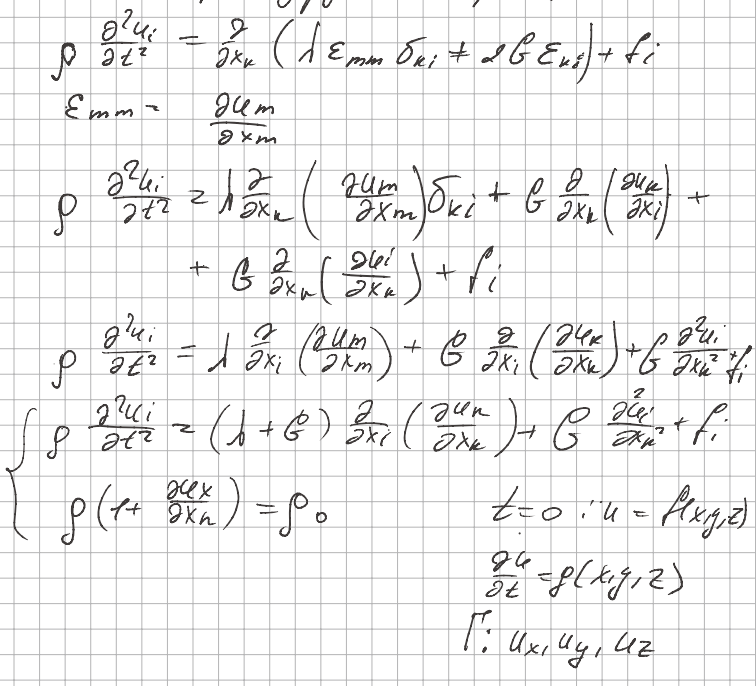 ρ ∂²uᵢ/∂t² = ∂/∂xₖ (λ εₘₘ δₖᵢ + 2G εₖᵢ) + fᵢ
εₘₘ = ∂uₘ/∂xₘ
ρ ∂²uᵢ/∂t² = λ ∂/∂xₖ (∂uₘ/∂xₘ) δₖᵢ + G ∂/∂xₖ (∂uₖ/∂xᵢ) +
+ G ∂/∂xₖ (∂uᵢ/∂xₖ) + fᵢ
ρ ∂²uᵢ/∂t² = λ ∂/∂xᵢ (∂uₘ/∂xₘ) + G ∂/∂xᵢ (∂uₖ/∂xₖ) + G ∂²uᵢ/∂xₖ² + fᵢ
{ ρ ∂²uᵢ/∂t² = (λ + G) ∂/∂xᵢ (∂uₖ/∂xₖ) + G ∂²uᵢ/∂xₖ² + fᵢ
ρ (1 + ∂uₖ/∂xₖ) = ρ₀
t = 0 : u = f(x,y,z)
∂u/∂t = g(x,y,z)
Γ: uₓ, u_y, u_z